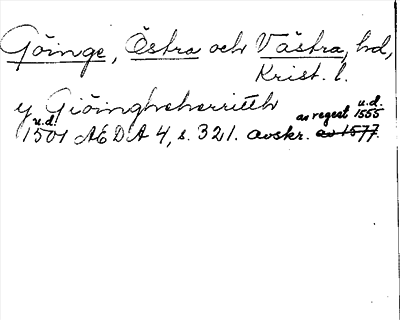 Göinge, Östra och Västra, hd,
Krist. l.
y Giöingheherritth
u.d. as regest u.d. 1555
1501 ÆDA 4, s. 321. avskr. av 1577.